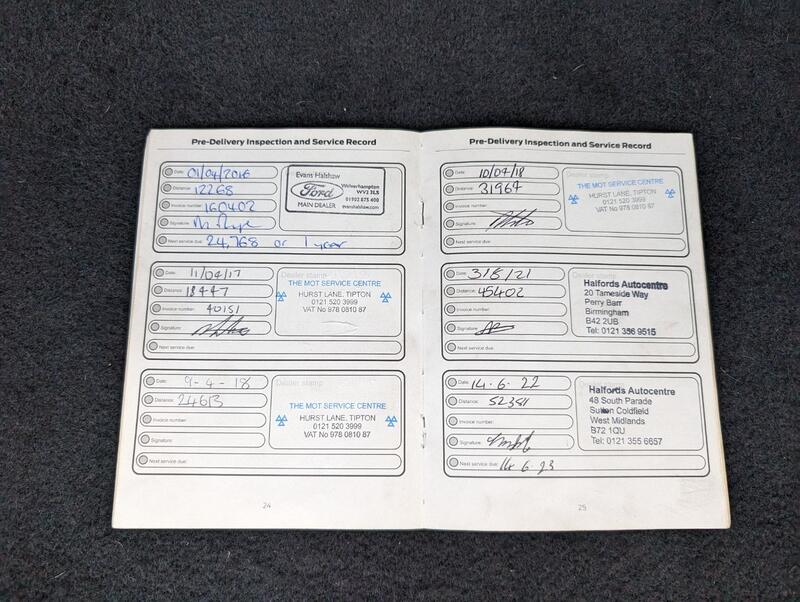 Pre-Delivery Inspection and Service Record
Date: 01/04/2016
Distance: 12268
Invoice number: 160402
Signature:
Next service due: 24,768 or 1 year
Evans Halshaw
Ford
MAIN DEALER
Wolverhampton
01902 875 400
evanshalshaw.com
Date: 11/04/17
Distance: 18447
Invoice number: 40151
Signature:
Next service due:
Dealer stamp
THE MOT SERVICE CENTRE
HURST LANE, TIPTON
0121 520 3999
VAT No 978 0810 87
Date: 9-4-18
Distance: 24613
Invoice number:
Signature:
Next service due:
Dealer stamp
THE MOT SERVICE CENTRE
HURST LANE, TIPTON
0121 520 3999
VAT No 978 0810 87
24
Pre-Delivery Inspection and Service Record
Date:
Distance: 31967
Invoice number:
Signature:
Next service due:
THE MOT SERVICE CENTRE
HURST LANE, TIPTON
0121 520 3999
VAT No 978 0810 87
Date: 3/8/21
Distance: 45402
Invoice number:
Signature:
Next service due:
Dealer stamp
Halfords Autocentre
20 Tameside Way
Perry Barr
Birmingham
B42 2UB
Tel: 0121 356 9515
Date: 14.6.22
Distance: 52381
Invoice number:
Signature:
Next service due: 14.6.23
Halfords Autocentre
48 South Parade
Sutton Coldfield
West Midlands
B72 1QU
Tel: 0121 355 6657
25